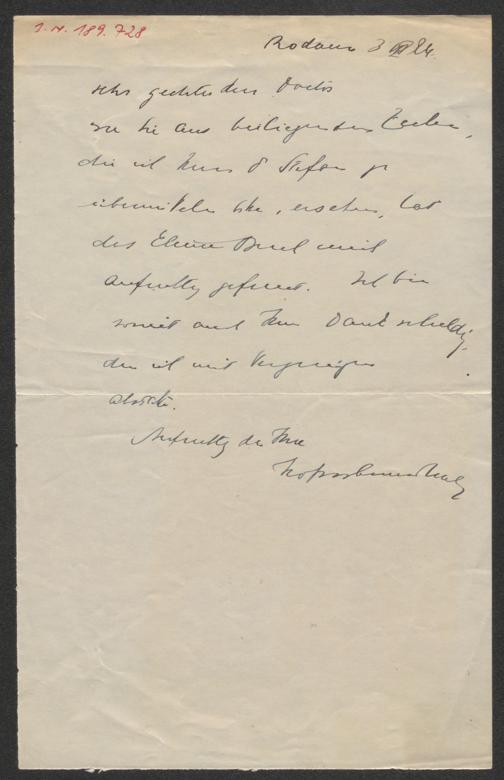 I.N. 189.728
Rodaun 3 XII 24.
sehr geehrter Herr Doctor
wie Sie aus beiliegenden Zeilen,
die ich Herrn D Stefan zu
übermitteln bitte, ersehen, hat
das Buch mich
aufrichtig gefreut. Ich bin
somit auch Ihnen Dank schuldig,
den ich mit Vergnügen
abstatte.
Aufrichtig der Ihre
Hofmannsthal